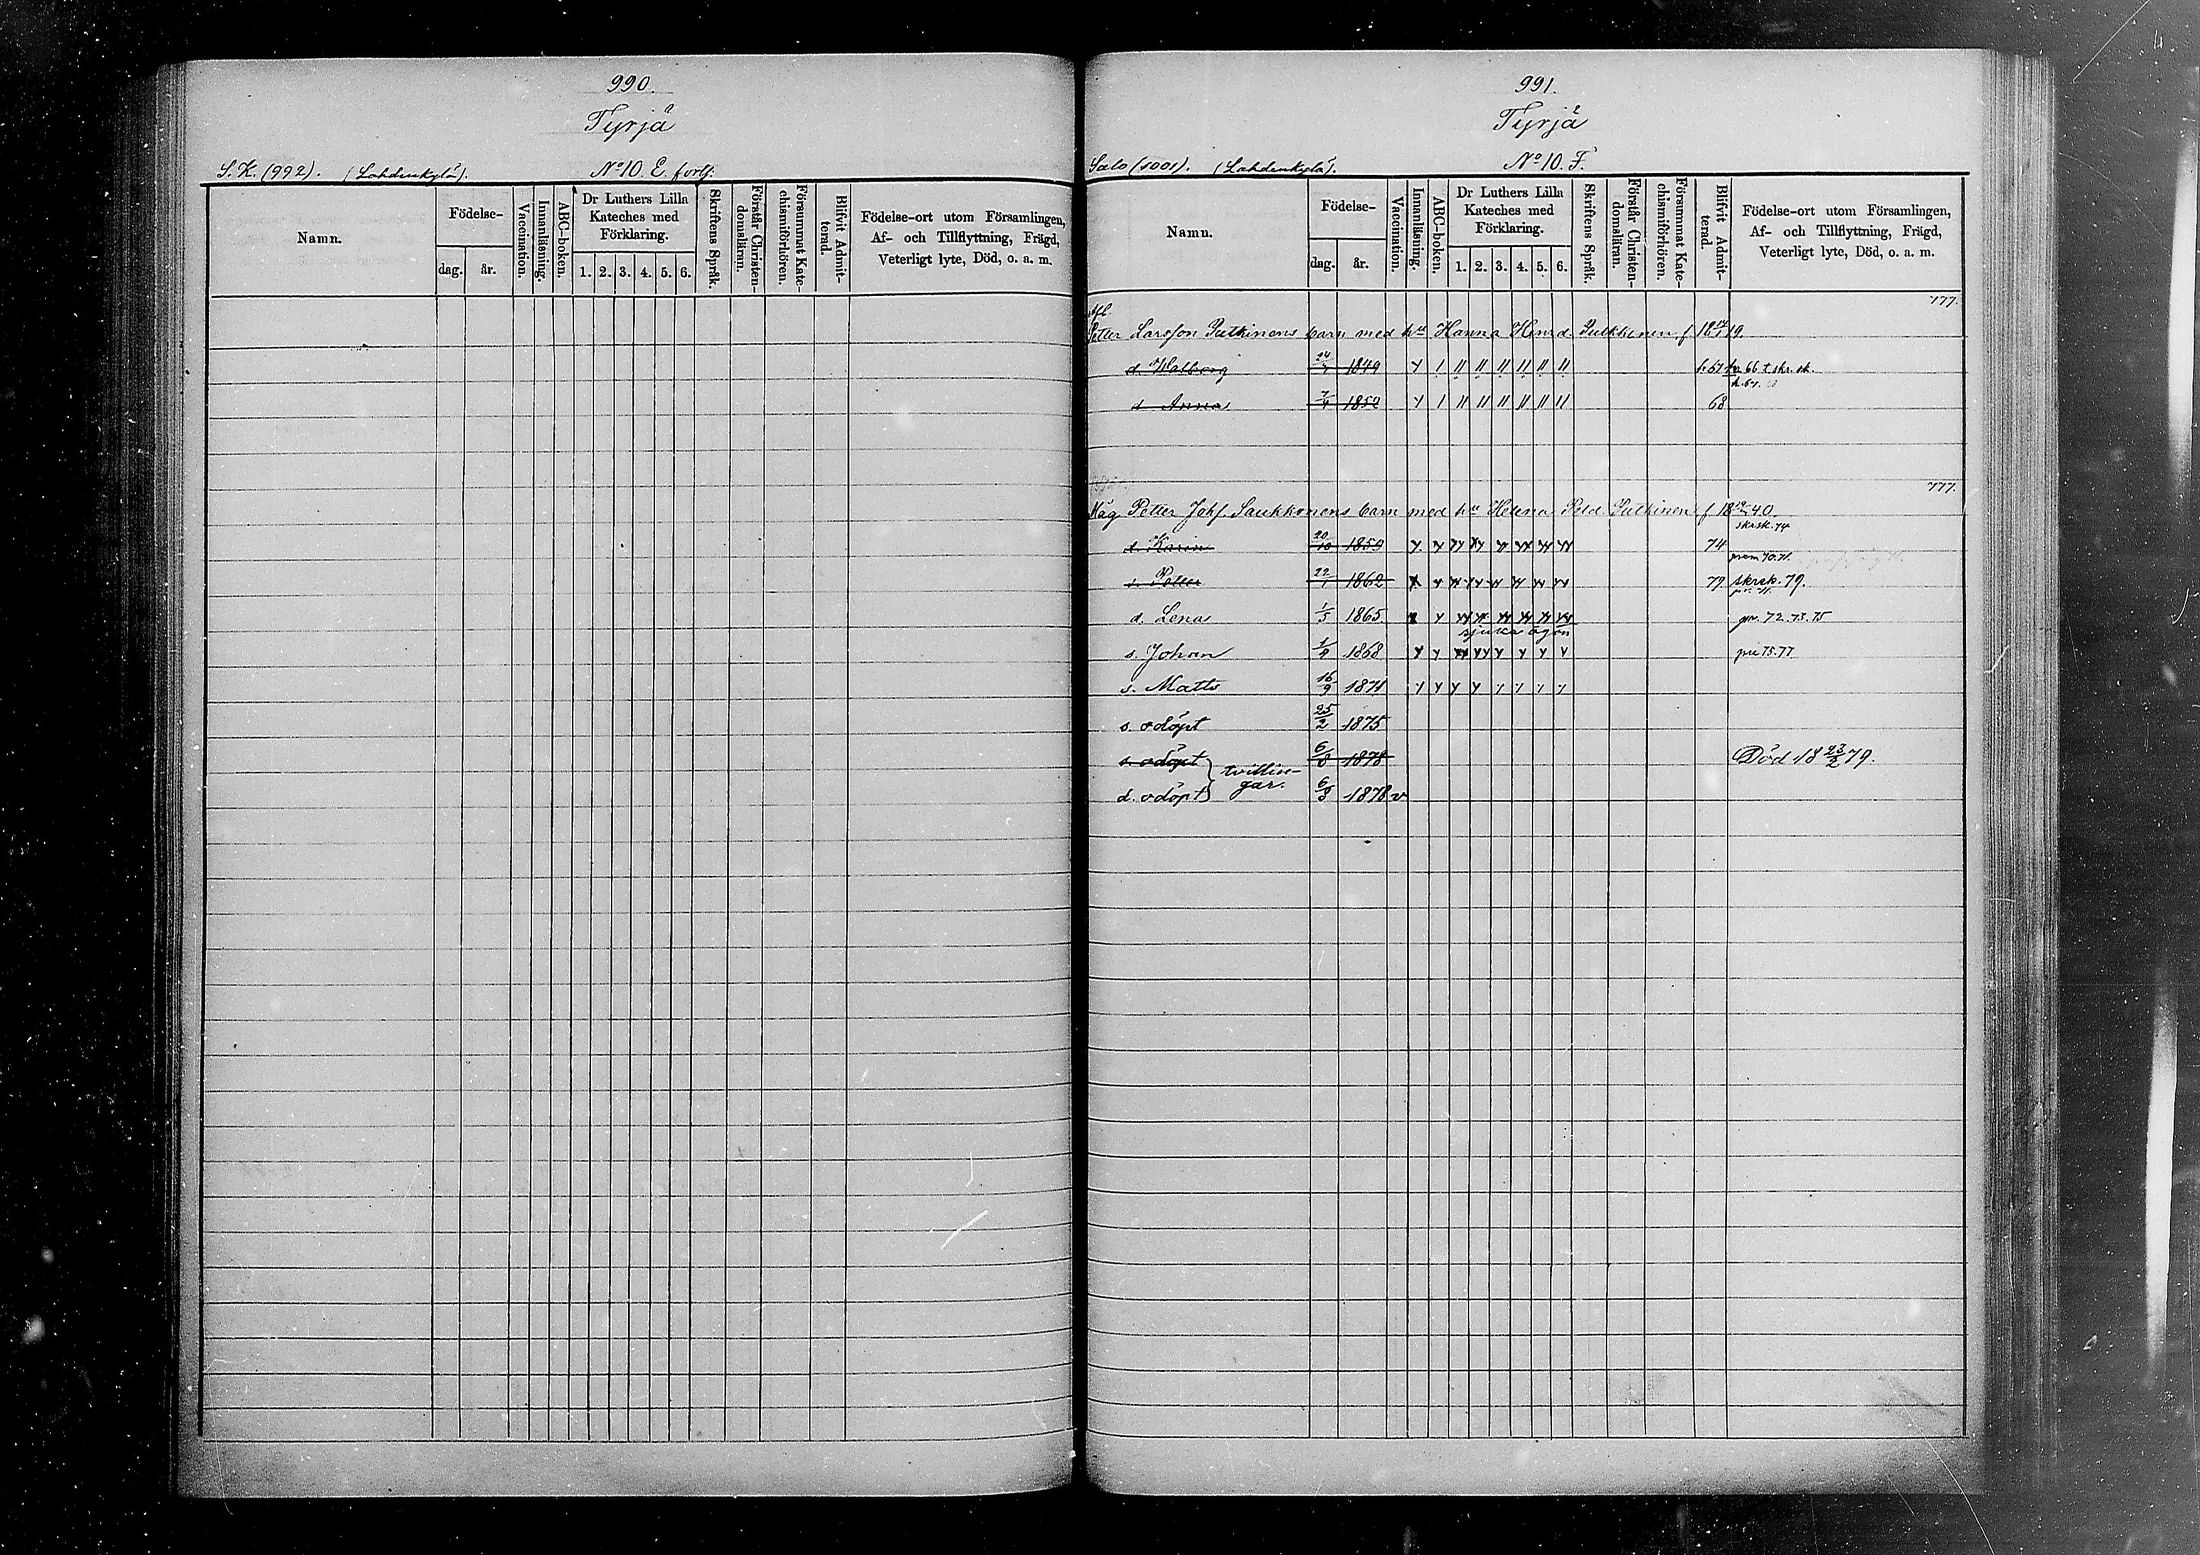 990.
Tyrjä
S. K. (992). (Lahdenkylä). No 10 E. forts.
Namn.
Födelse-
dag. år.
Vaccination.
Innanläsning.
ABC-boken.
Dr Luthers Lilla Kateches med Förklaring.
1. 2. 3. 4. 5. 6.
Skriftens Språk.
Förstår Christen-domsläran.
Försummat Kate-chismiförhören.
Blifvit Admit-terad.
Födelse-ort utom Församlingen,
Af- och Tillflyttning, Frägd,
Veterligt lyte, Död, o. a. m.
991.
Tyrjä
Salo (1001). (Lahdenkylä). No 10. F.
Namn.
Födelse-
dag. år.
Vaccination.
Innanläsning.
ABC-boken.
Dr Luthers Lilla Kateches med Förklaring.
1. 2. 3. 4. 5. 6.
Skriftens Språk.
Förstår Christen-domsläran.
Försummat Kate-chismiförhören.
Blifvit Admit-terad.
Födelse-ort utom Församlingen,
Af- och Tillflyttning, Frägd,
Veterligt lyte, Död, o. a. m.
777.
Petter Larsson Putkinens barn med hu Hanna Henr.d. Pulkkinen f 18 19.
d. Walborg 1849 66 t. skr. sk.
d. Anna 1852 68
777.
Måg Petter Johs. Saukkonens barn med hu Helena Petd. Putkinen f 18 40.
skrsk. 74
d. Karin 20/10 1859 74
prem 70. 71.
s. Petter 22/1 1862 79 skrsk. 79.
d. Lena 1/5 1865 pr. 72. 73. 75
sjuka ögon
s. Johan 1868 pre 75. 77
s. Matts 16/9 1871
s. odöpt 25/2 1875
s. odöpt 6/8 1878 Död 18 23/2 79.
tvillin-
gar.
d. odöpt 6/8 1878 v